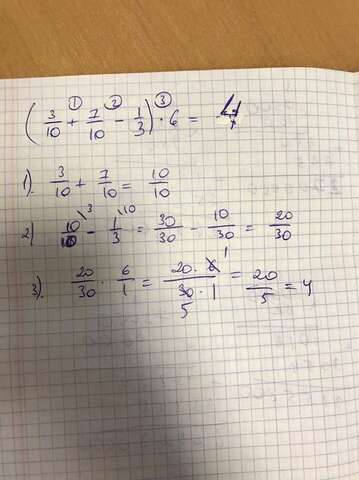 (3/10 +① 7/10 -② 1/3) ·③ 6 = 4
1). 3/10 + 7/10 = 10/10
2) 10/10 \3 - 1/3 \10 = 30/30 - 10/30 = 20/30
3). 20/30 · 6/1 = 20 · 6 1/30 5 · 1 = 20/5 = 4